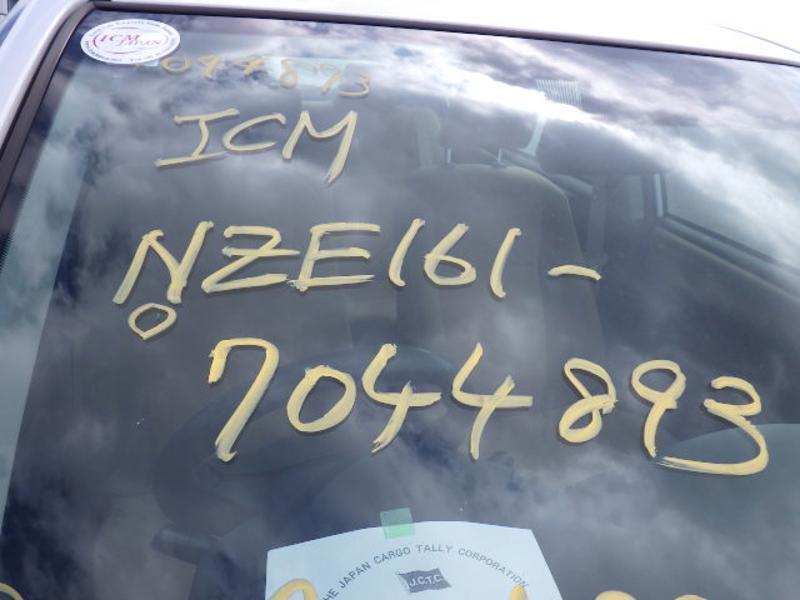 ICM
JAPAN
7044893
ICM
NZE161-
7044893
THE JAPAN CARGO TALLY CORPORATION
J.C.T.C